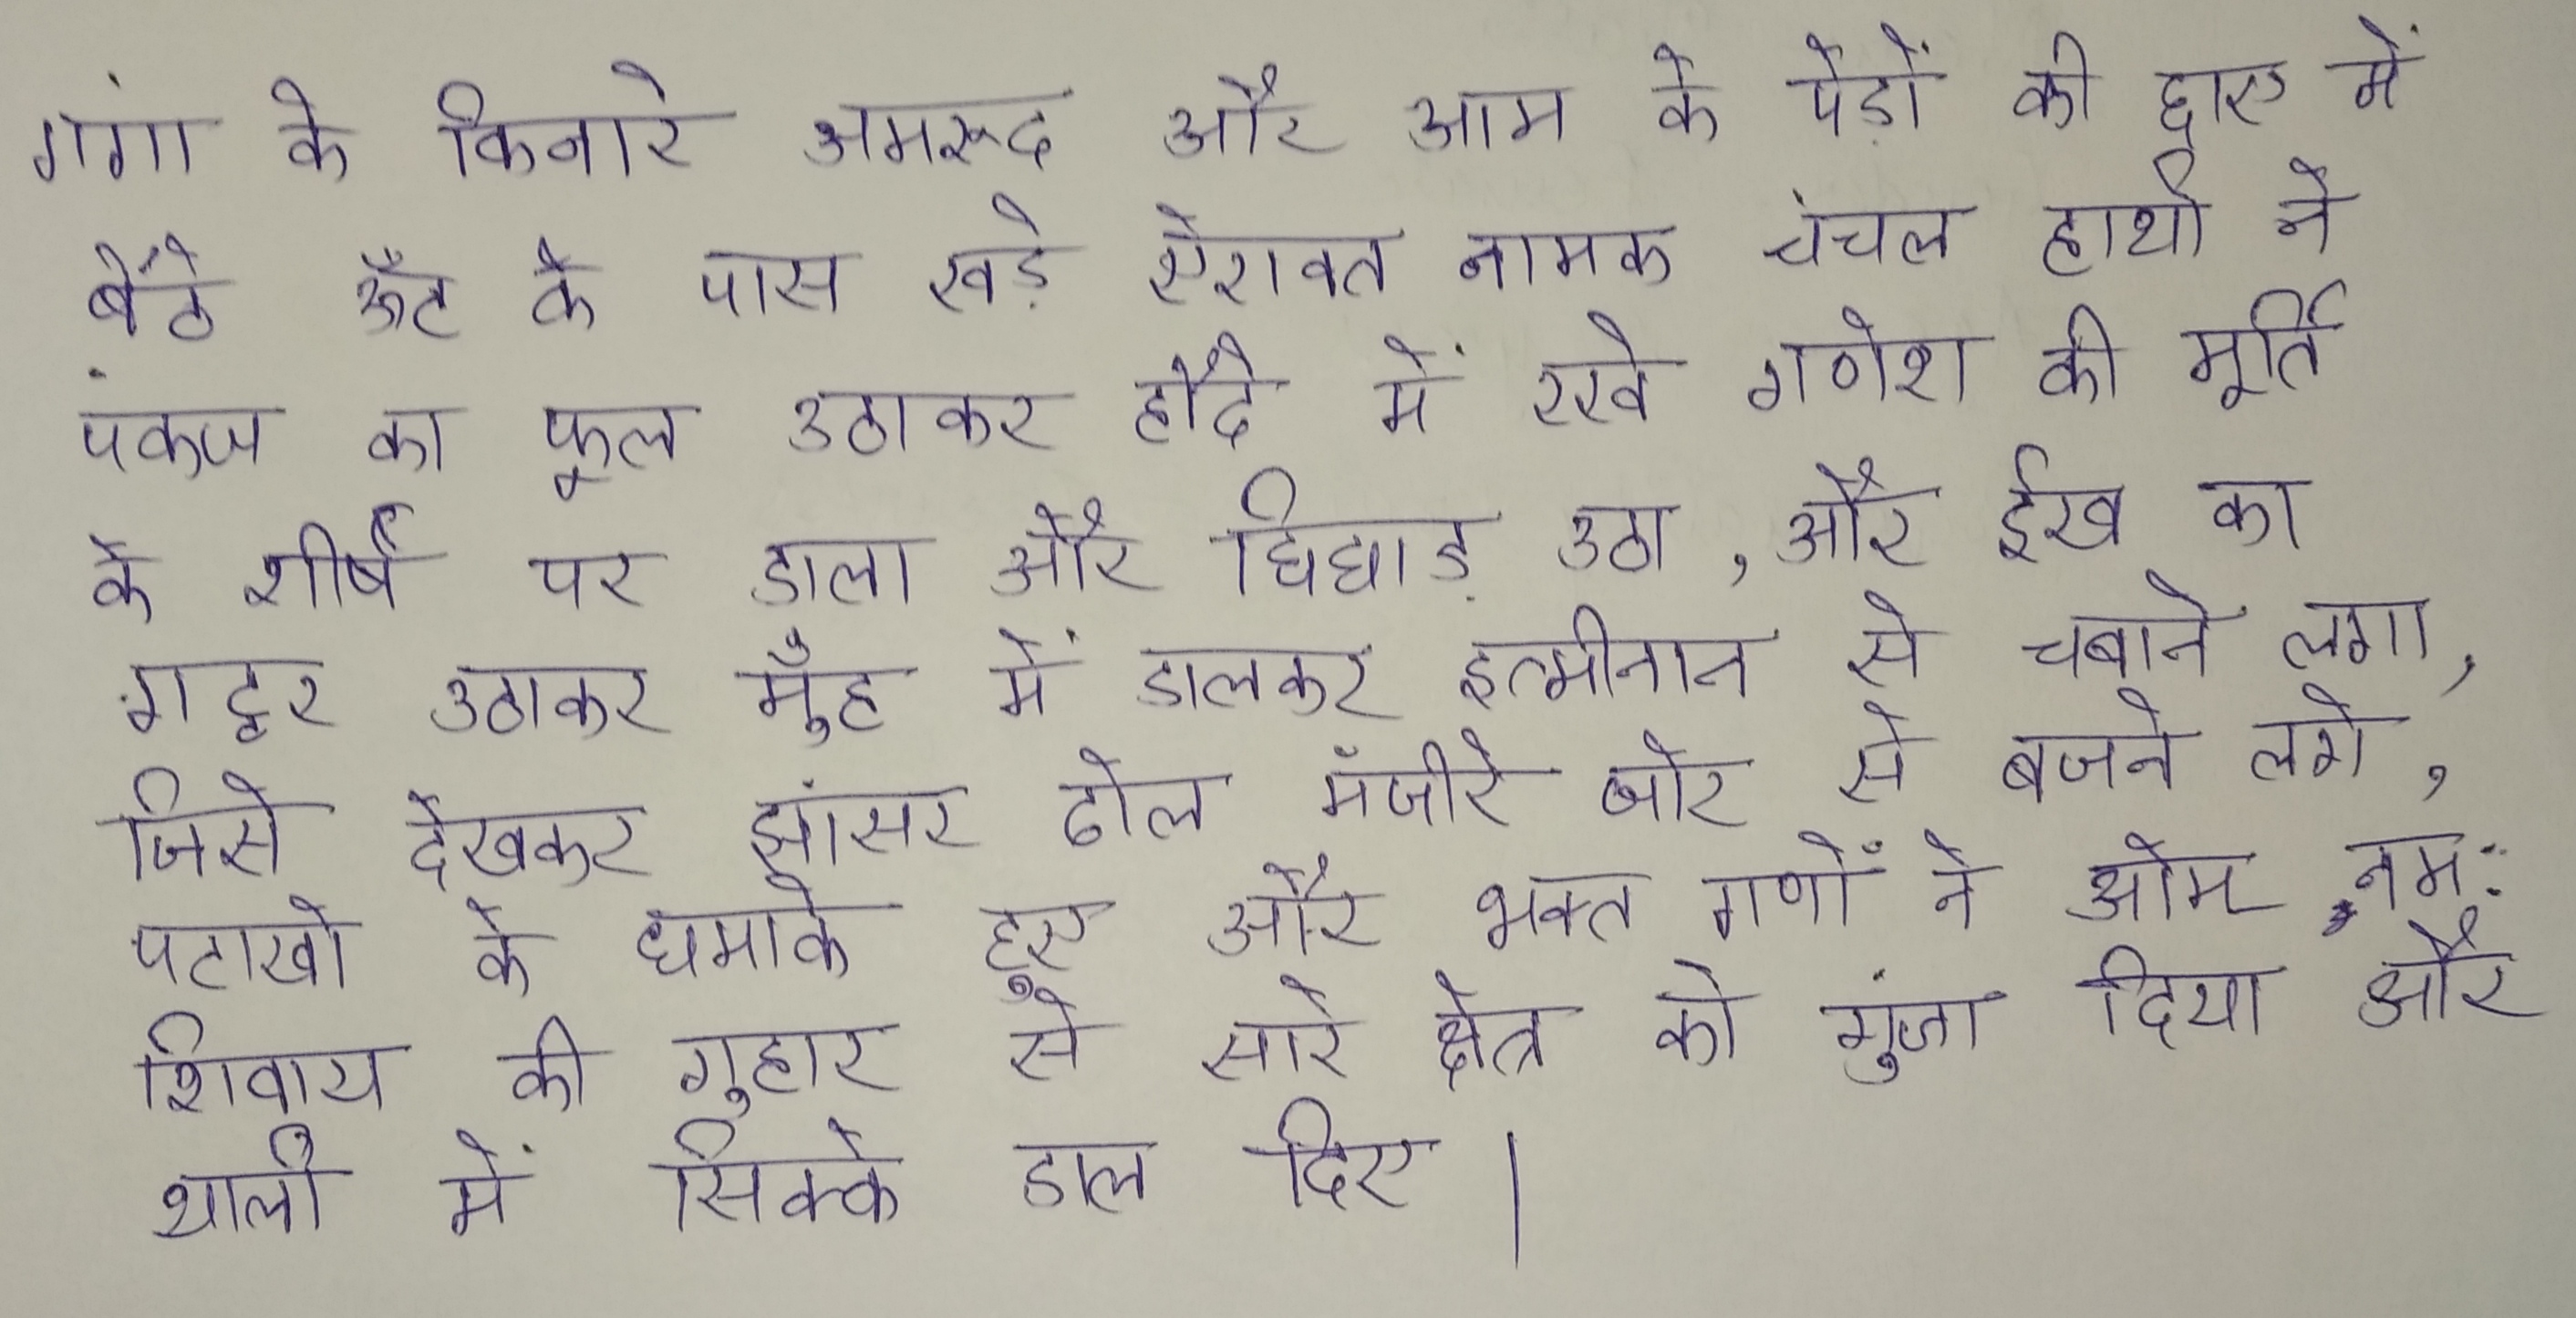 गंगा के किनारे अमरूद और आम के पेड़ों की छाए में
बैठे ऊँट के पास खड़े ऐरावत नामक चंचल हाथी ने
पंकज का फूल उठाकर हौदे में रखे गणेश की मूर्ति
के शीर्ष पर डाला और घिघाड़ उठा, और ईख का
गट्ठर उठाकर मुँह में डालकर इत्मीनान से चबाने लगा,
जिसे देखकर झांसर ढोल मंजीरे जोर से बजने लगे,
पटाखो के धमाके हुए और भक्त गणों ने ओम नम:
शिवाय की गुहार से सारे क्षेत्र को गुंजा दिया और
थाली में सिक्के डाल दिए |